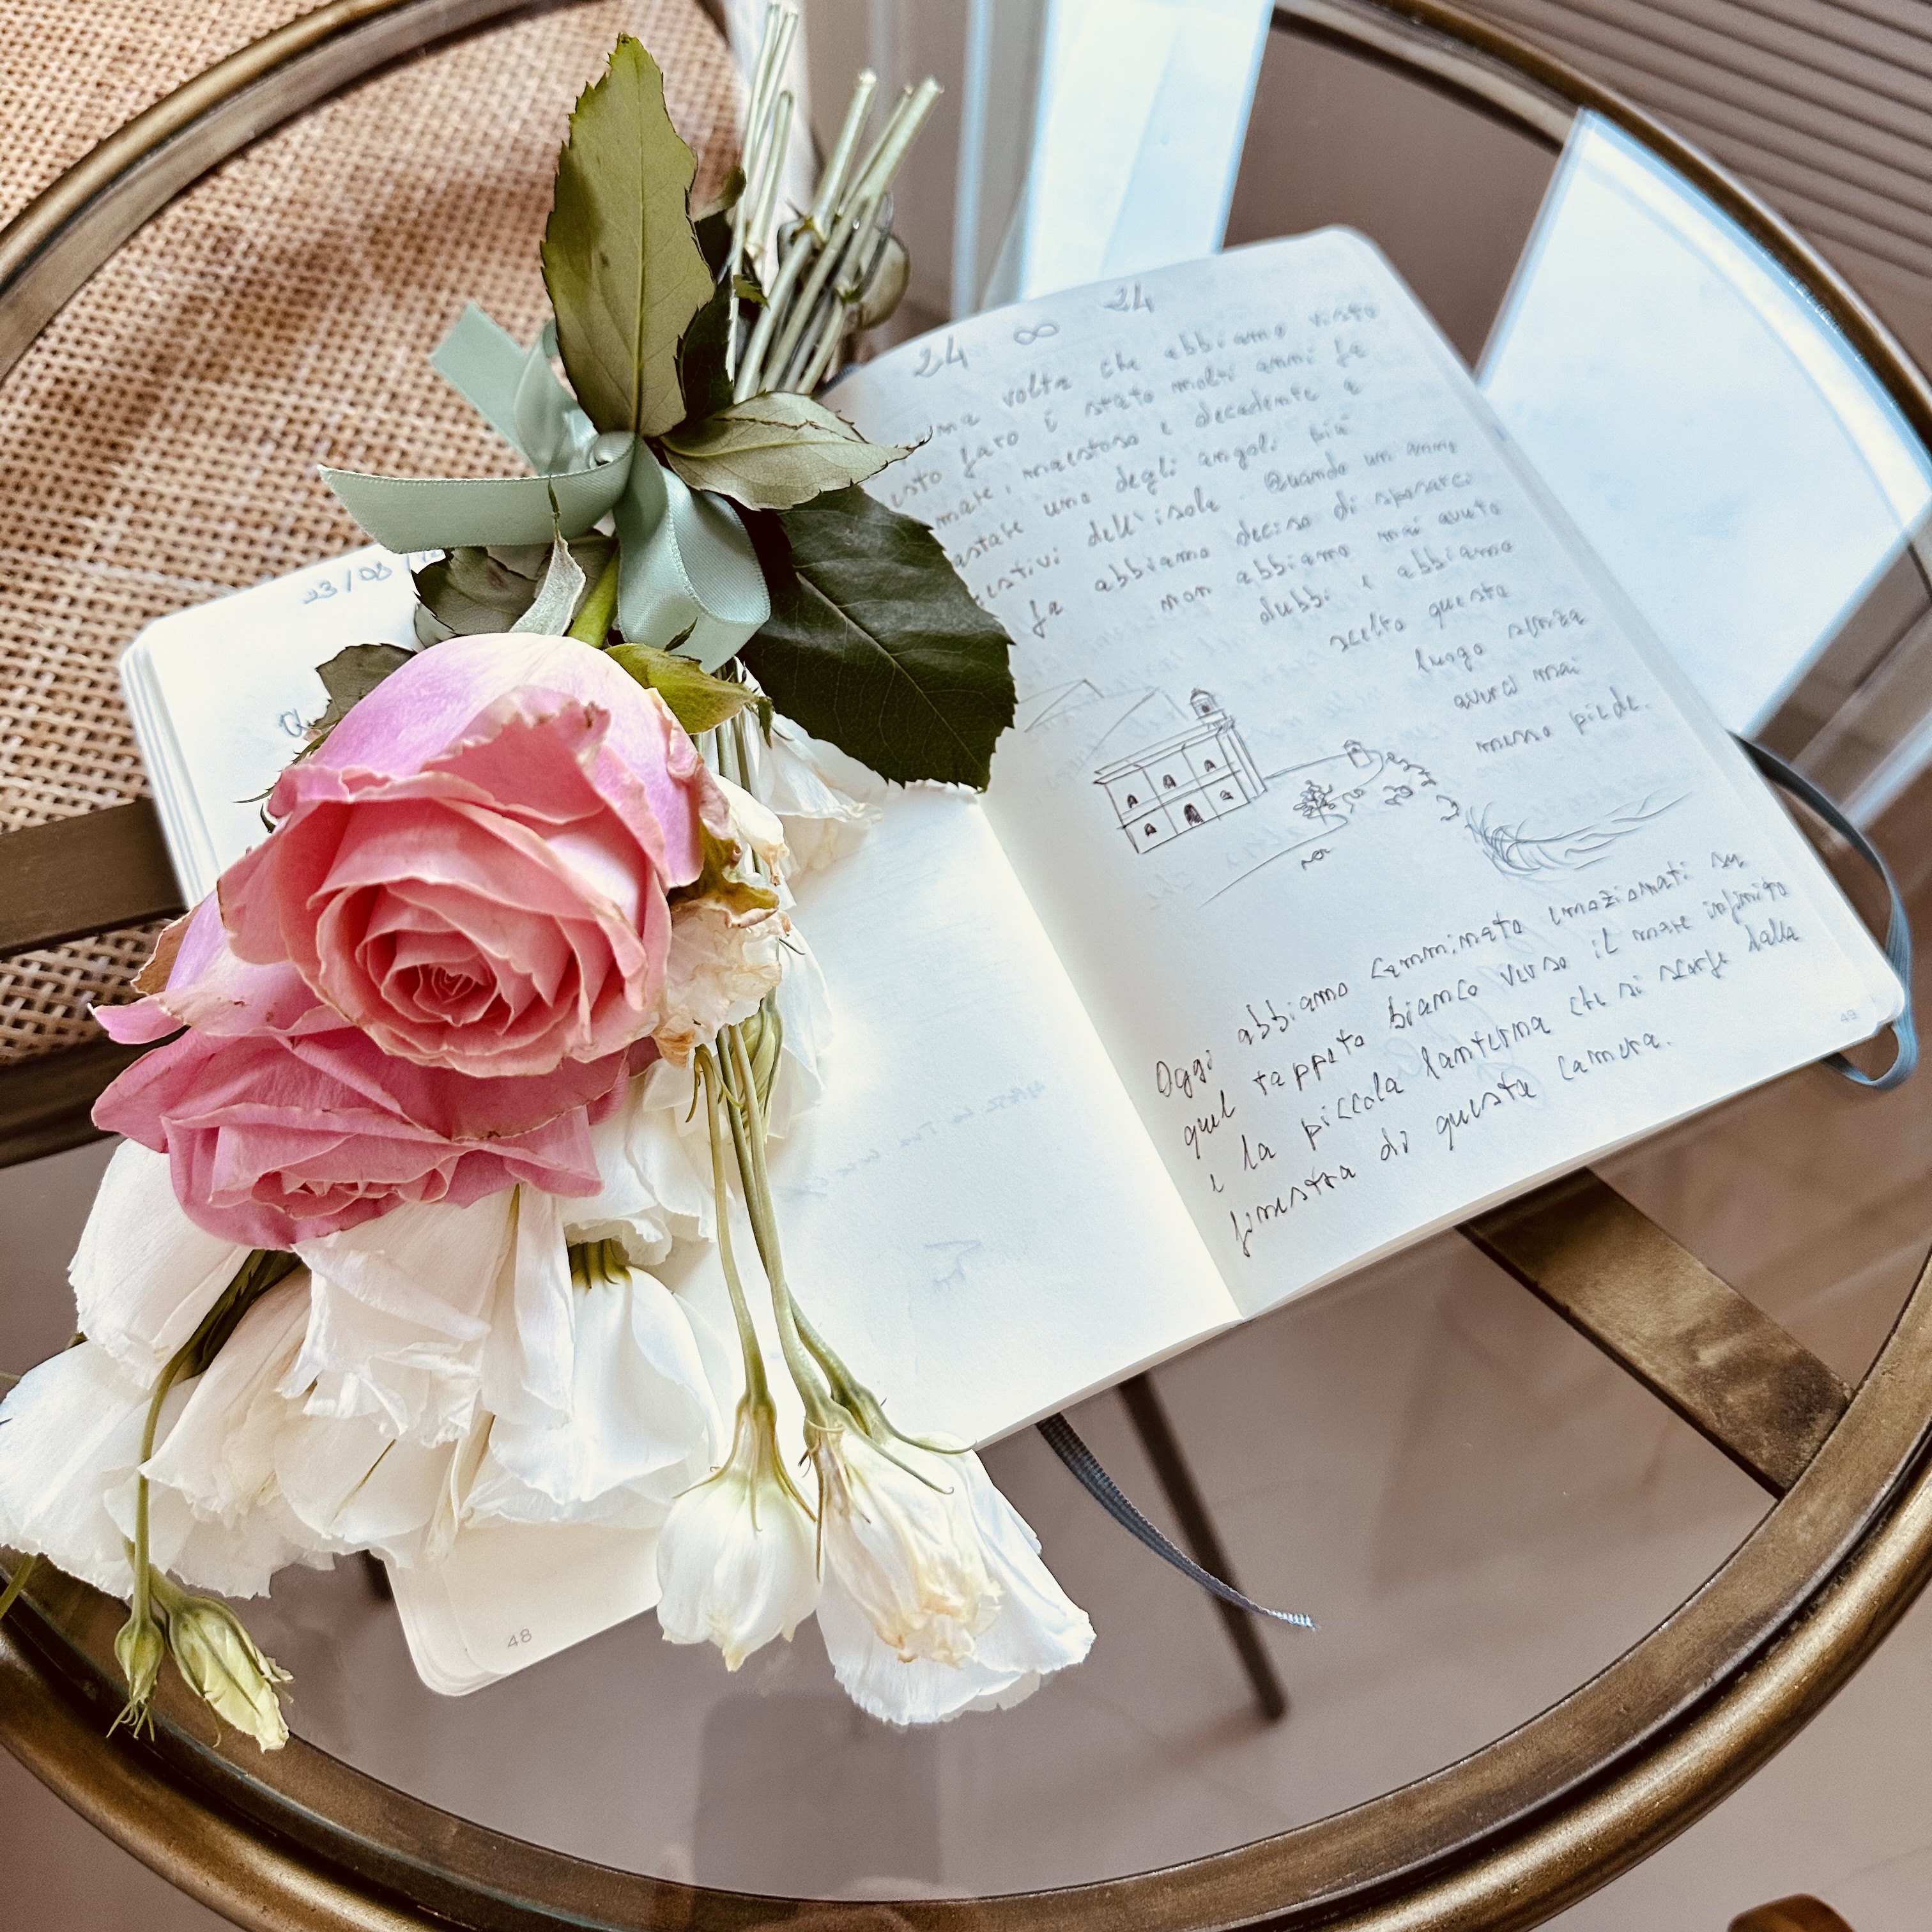 23/08/
48
24 ∞ 24
una volta che abbiamo visto
esto faro è stato molti anni fa
mare, maestoso e decadente a
astare uno degli angoli più
estivi dell'isola. Quando un anno
fa abbiamo deciso di sposarci
non abbiamo mai avuto
dubbi e abbiamo
scelto questo
luogo senza
averci mai
messo piede.
Oggi abbiamo camminato emozionati su
quel tappeto bianco verso il mare infinito
e la piccola lanterna che si scorge dalla
finestra di questa camera.
49